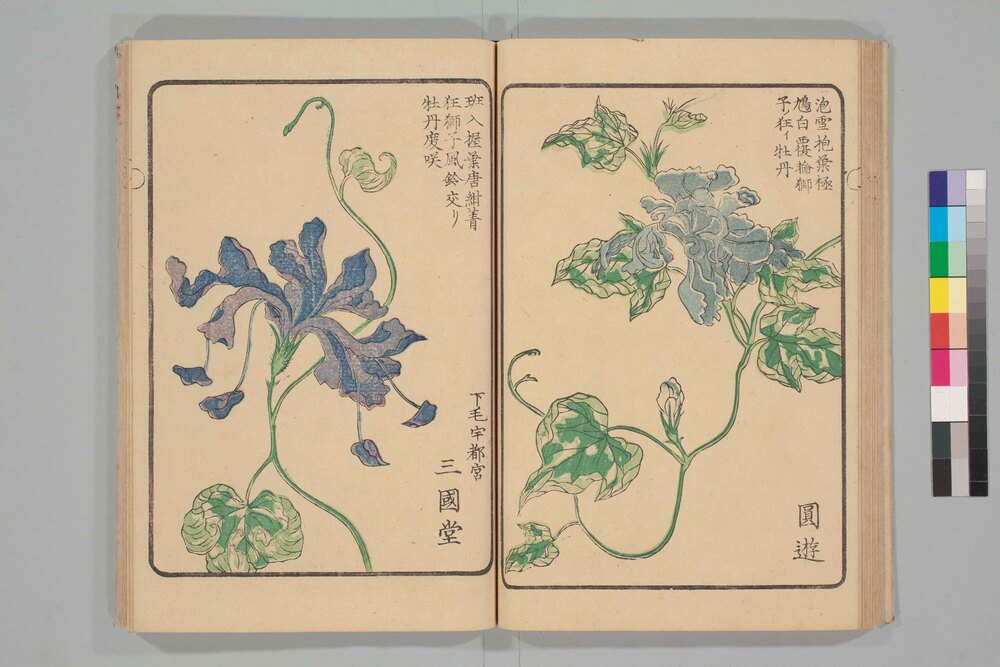 泡雪抱葉極
鳩白覆輪獅
子狂ヒ牡丹
圓遊
斑入握葉唐紺青
狂獅子風鈴交リ
牡丹度咲
下毛宇都宮
三國堂